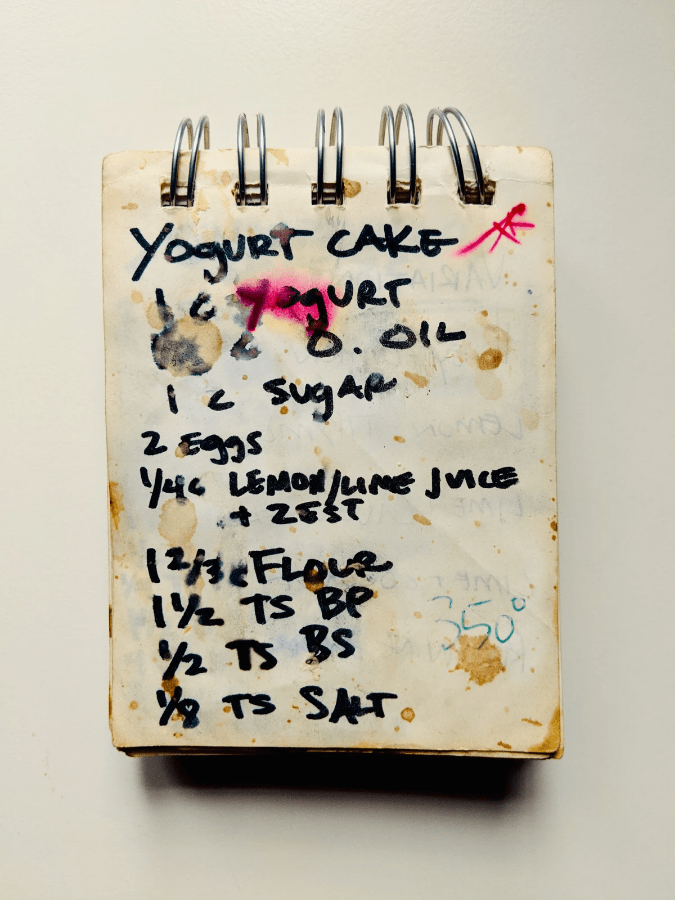 YOGURT CAKE
1 C YOGURT
C O. OIL
1 C SUGAR
2 EGGS
1/4 C LEMON/LIME JUICE
+ ZEST
1 2/3 C FLOUR
1 1/2 TS BP
350°
1/2 TS BS
1/8 TS SALT